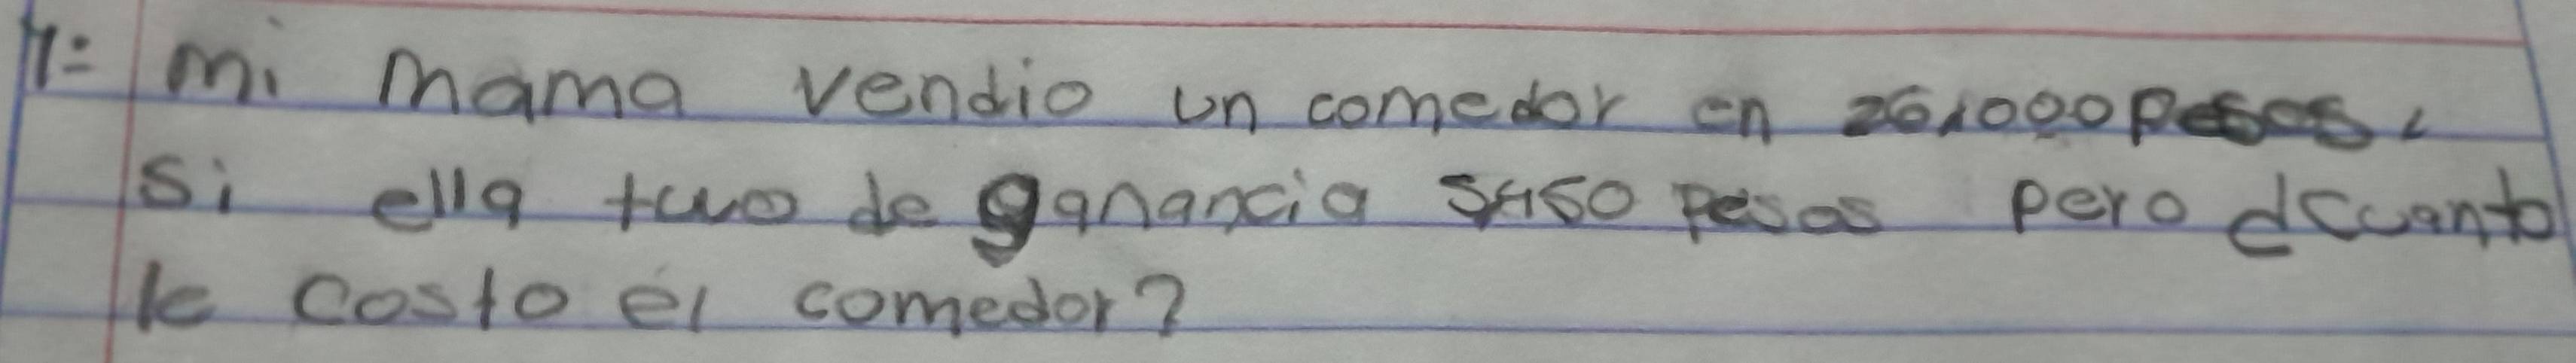 1= mi mama vendio un comedor en 26,000 pesos,
si ella tuvo de ganancia 5450 pesos pero ¿cuanto
le costo el comedor?